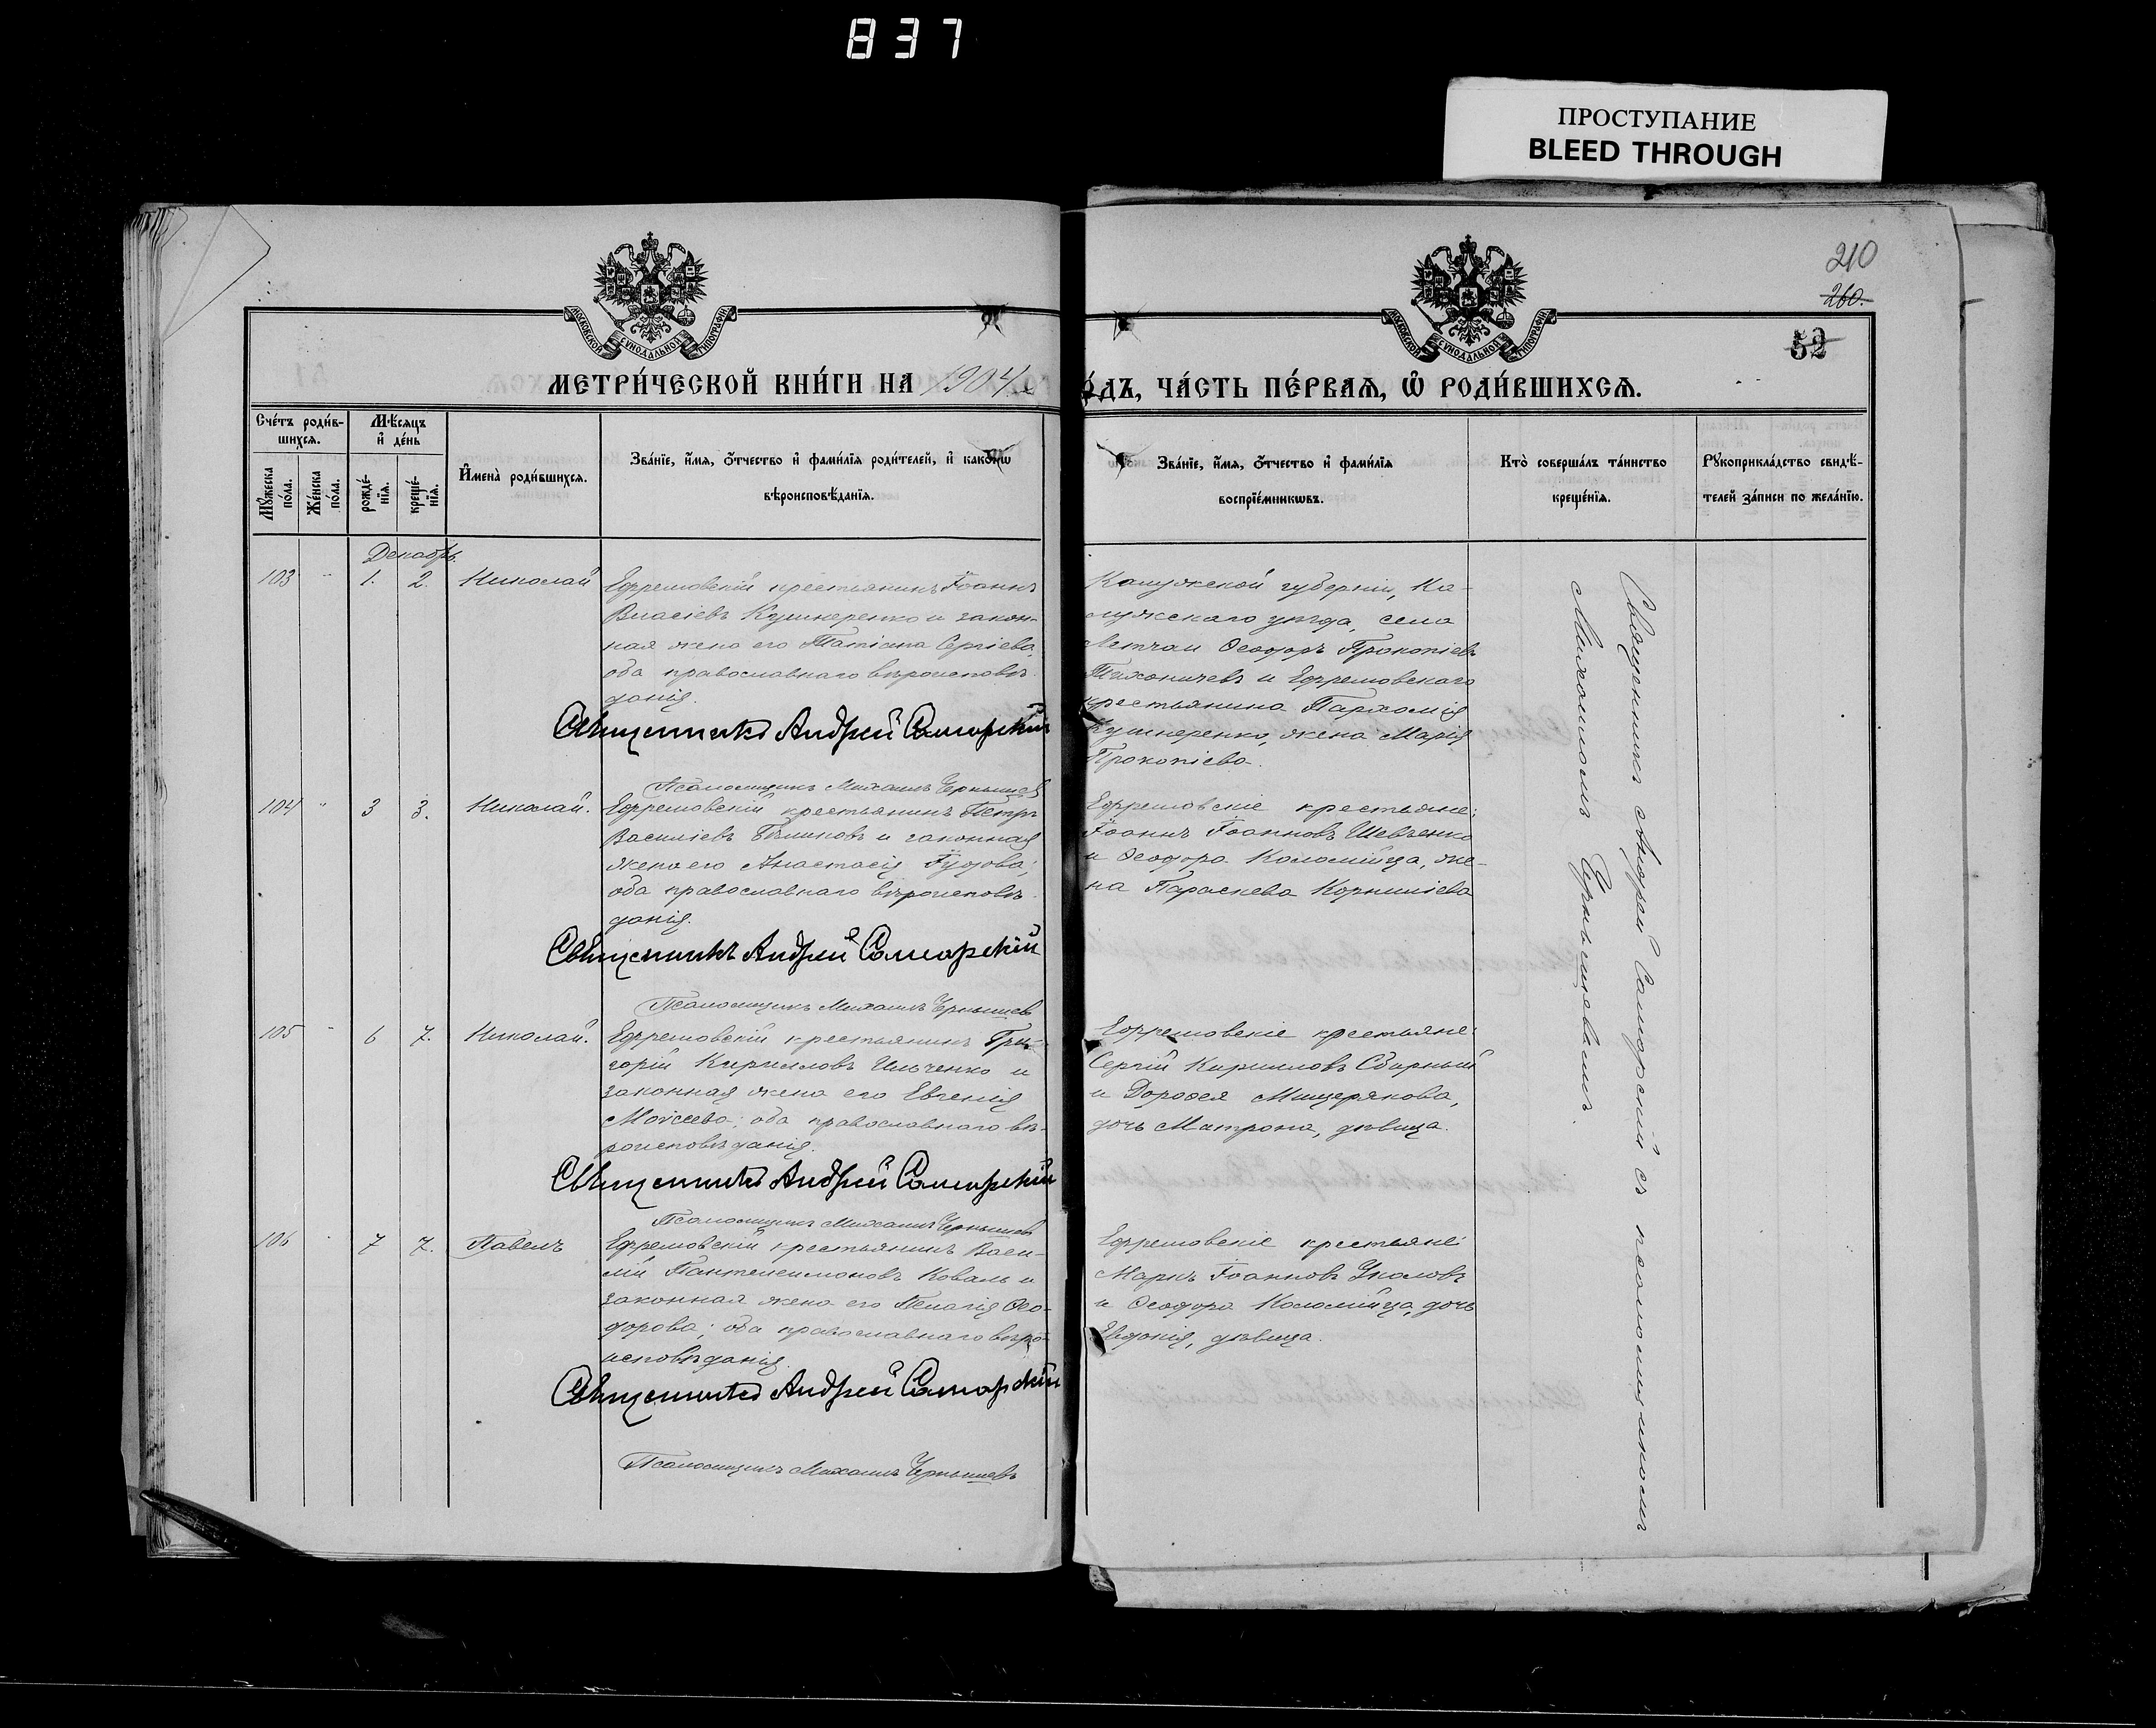 837
ПРОСТУПАНИЕ
BLEED THROUGH
210
260.
52
МОСКОВСКОЙ СѴНОДАЛЬНОЙ ТИПОГРАФІИ
МОСКОВСКОЙ СѴНОДАЛЬНОЙ ТИПОГРАФІИ
МЕТРИ́ЧЕСКОЙ КНИ́ГИ НА 1904
о́дъ, ЧА́СТЬ ПЕ́РВАЯ, Ѡ҆ РОДИ́ВШИХСѦ.
Сче́тъ роди́в-
шихсѧ.
Мꙋ́жеска по́ла.
Же́нска по́ла.
Мѣ́сѧцъ
и҆ де́нь
рожде́-
нїѧ.
креще́-
нїѧ.
И҆мена̀ роди́вшихсѧ.
Зва́нїе, и҆́мѧ, ѻ҆́тчество и҆ фами́лїѧ роди́телей, и҆ како́гѡ
вѣроисповѣ́данїѧ.
Зва́нїе, и҆́мѧ, ѻ҆́тчество и҆ фами́лїѧ
воспрїе́мникѡвъ.
Кто̀ соверша́лъ та́инство
креще́нїѧ.
Рꙋкоприкла́дство свидѣ́-
телей за́писи по жела́нїю.
Декабрь
103 " 1. 2. Николай
Ефремовскій крестьянинъ Іоаннъ
Власіевъ Кушнеренко и закон-
ная жена его Татіана Сергіева,
оба православнаго вѣроисповѣ-
данія.
Священникъ Андрей Самарскій
Псаломщикъ Михаилъ Чернышев
Калужской губерніи, Ка-
лужскаго уѣзда, села
Ѳеодоръ Прокопіевъ
Тихоничевъ и Ефремовскаго
крестьянина Пархомія
Кушнеренко, жена Марія
Прокопіева.
104 " 3 3. Николай.
Ефремовскій крестьянинъ Петръ
Василіевъ и законная
жена его Анастасія
оба православнаго вѣроисповѣ-
данія.
Священникъ Андрей Самарскій
Псаломщикъ Михаилъ Чернышев
Ефремовскіе крестьяне:
Іоаннъ Іоанновъ Шевченко
и Ѳеодора Коломійца, же-
на Параскева Корниліева
105 " 6 7. Николай.
Ефремовскій крестьянинъ Гри-
горій Кирилловъ Ильченко и
законная жена его Евгенія
Моѵсеева; оба православнаго вѣ-
роисповѣданія.
Священникъ Андрей Самарскій
Псаломщикъ Михаилъ Чернышев
Ефремовскіе крестьяне:
Сергій Кирилловъ Сварный
и Дороѳея Мищерякова,
дочь Матрона, дѣвица.
106 " 7 7. Павелъ
Ефремовскій крестьянинъ Васи-
лій Пантелеимоновъ Коваль и
законная жена его Пелагія Ѳео-
дорова; оба православнаго вѣро-
исповѣданія.
Священникъ Андрей Самарскій
Псаломщикъ Михаилъ Чернышевъ
Ефремовскіе крестьяне:
Маркъ Іоанновъ Укаловъ
и Ѳеодора Коломійца, дочь
Евдокія, дѣвица.
Священникъ Андрей Самарскій съ псаломщикомъ
Михаиломъ Чернышевымъ.